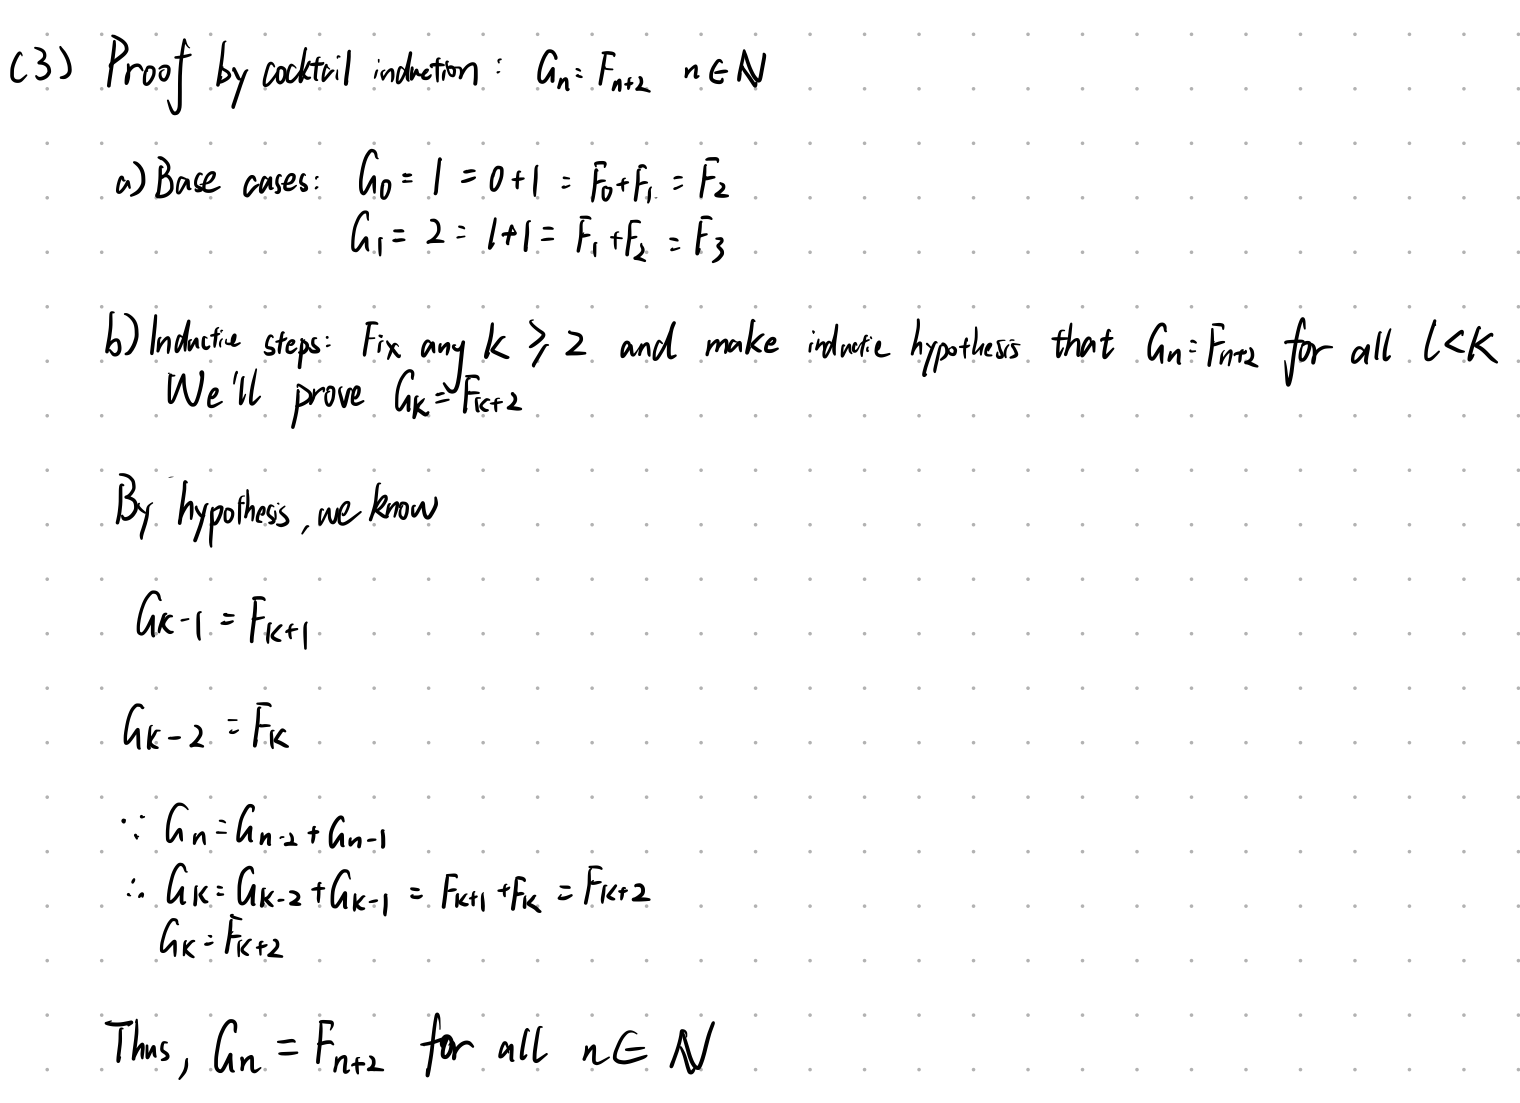 (3) Proof by cocktail induction: Gₙ = Fₙ₊₂ n ∈ ℕ
a) Base cases: G₀ = 1 = 0+1 = F₀+F₁ = F₂
G₁ = 2 = 1+1 = F₁+F₂ = F₃
b) Inductive steps: Fix any k ⩾ 2 and make inductive hypothesis that Gₙ = Fₙ₊₂ for all l < k
We'll prove Gₖ = Fₖ₊₂
By hypothesis, we know
Gₖ₋₁ = Fₖ₊₁
Gₖ₋₂ = Fₖ
∵ Gₙ = Gₙ₋₂ + Gₙ₋₁
∴ Gₖ = Gₖ₋₂ + Gₖ₋₁ = Fₖ₊₁ + Fₖ = Fₖ₊₂
Gₖ = Fₖ₊₂
Thus, Gₙ = Fₙ₊₂ for all n ∈ ℕ